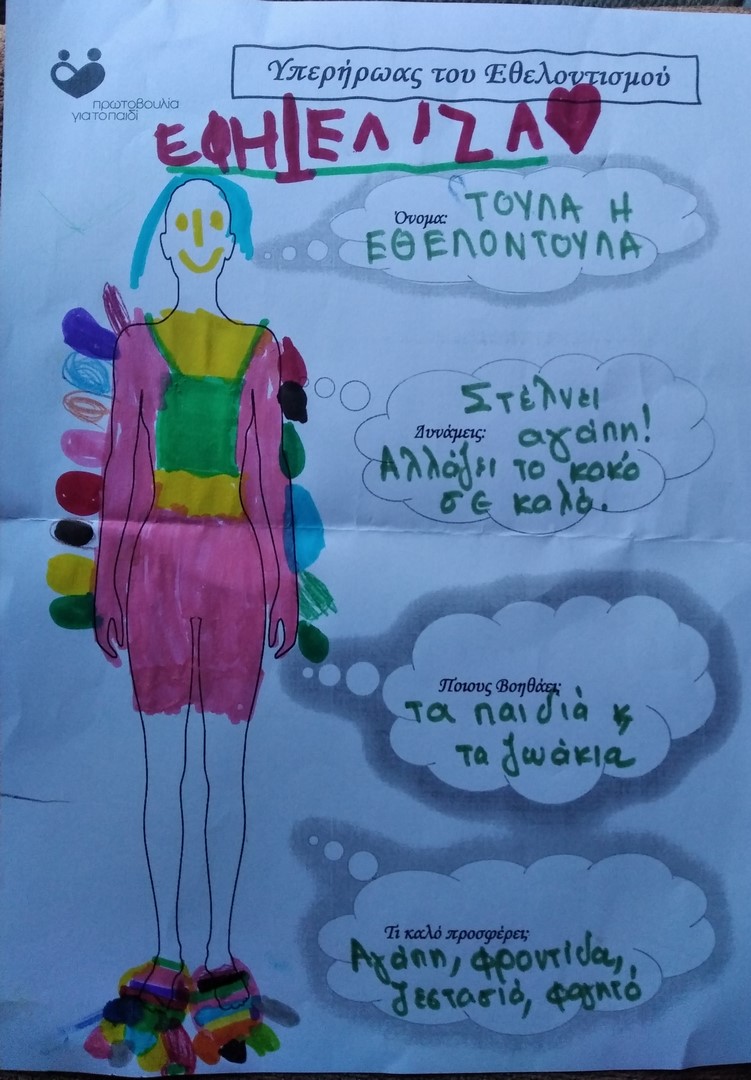 Υπερήρωας του Εθελοντισμού
πρωτοβουλία
για το παιδί
ΕΦΗ ΕΛΙΖΑ
Όνομα: ΤΟΥΛΑ Η
ΕΘΕΛΟΝΤΟΥΛΑ
Στέλνει
Δυνάμεις: αγάπη!
Αλλάζει το κακό
σε καλό.
Ποιους Βοηθάει;
τα παιδιά &
τα ζωάκια
Τι καλό προσφέρει;
Αγάπη, φροντίδα,
ζεστασιά, φαγητό